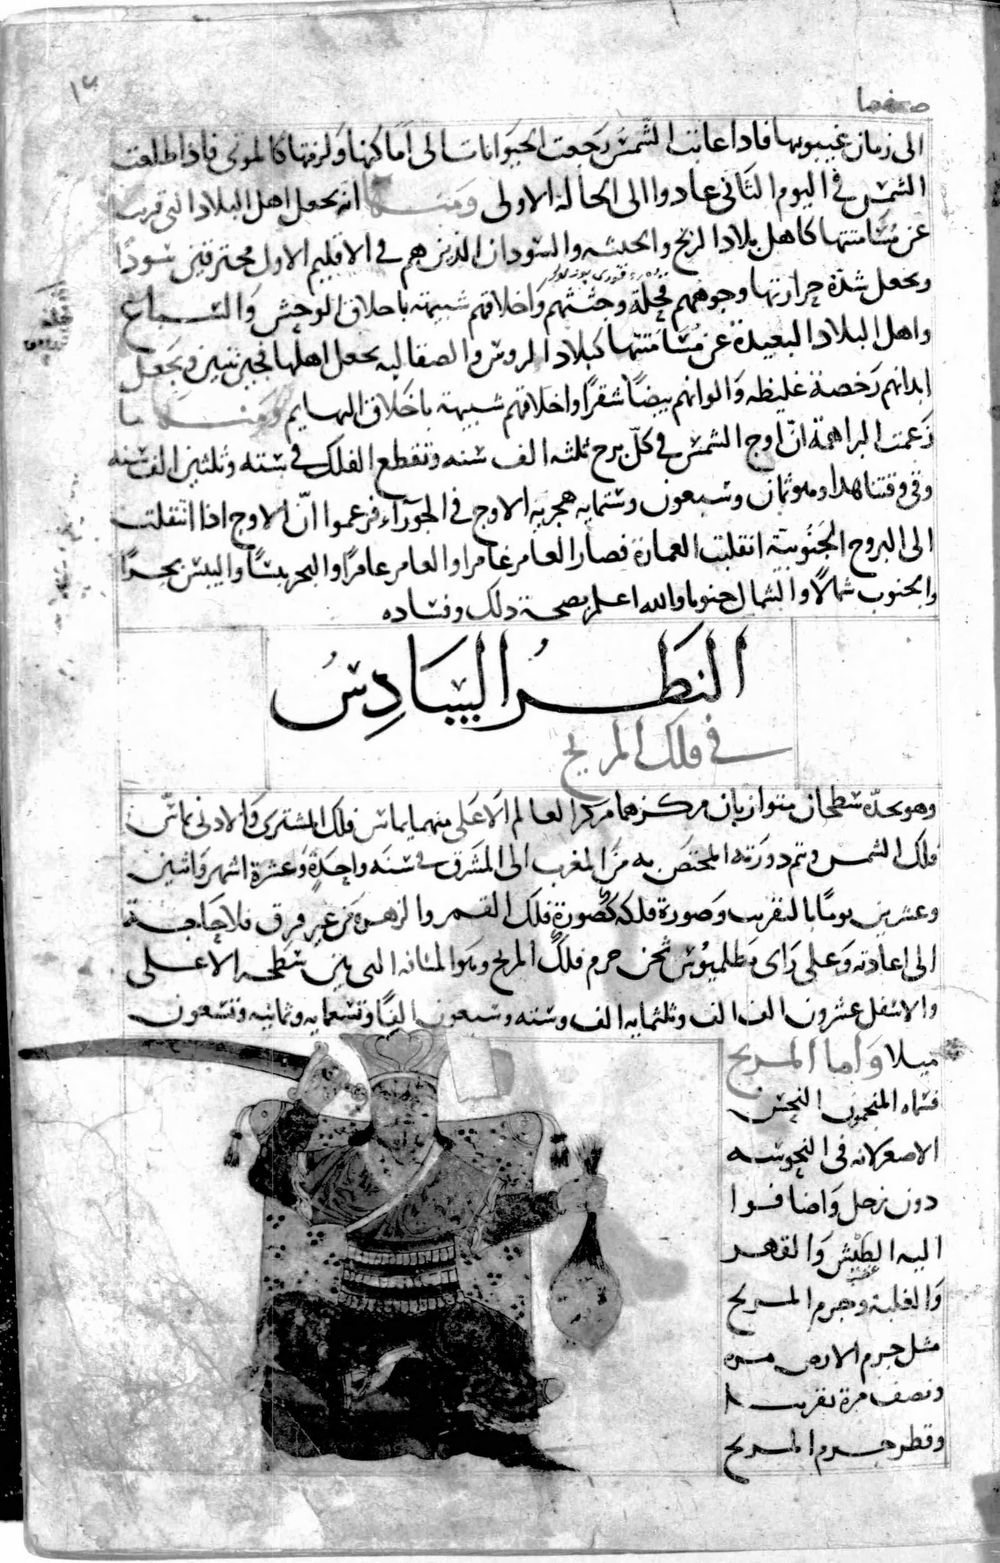 ١٤
صفها
الى زمان غيبوبتها فاذا غابت الشمس رجعت الحيوانات الى اماكنها ولزمتها كالموتى فاذا طلعت
الشمس في اليوم الثاني عادوا الى الحالة الاولى ومنها انه يجعل اهل البلاد التي قربت
عن مسامتتها كاهل بلاد الزنج والحبشه والسودان الذين هم في الاقليم الاول محترقين سودا
ويجعل شدة حرارتها وجوههم قحلة وجثثهم واخلاقهم شبيهة باخلاق الوحش والسباع
واهل البلاد البعيدة عن مسامتتها كبلاد الروس والصقالبه يجعل اهلها فجين نيين ويجعل
ابدانهم رخصة غليظه والوانهم بيضا شقرا واخلاقهم شبيهة باخلاق البهايم ومنها ما
زعمت البراهمة ان اوج الشمس في كل برج ثلثه الف سنه وتقطع الفلك في سته وثلثين الف سنه
وفي وقتنا هذا وهو ثمان وسبعون وستمايه هجريه الاوج في الجوزآء فزعموا ان الاوج اذا انتقلت
الى البروج الجنوبية انتقلت العمارة فصار العامر غامرا والغامر عامرا والبحر يبسا واليبس بحرا
والجنوب شمالا والشمال جنوبا والله اعلم بصحة ذلك وفساده
النظر السادس
في فلك المريخ
وهو يحده سطحان متوازيان مركزهما مركز العالم الاعلى منهما يماس فلك المشتري والادنى يماس
فلك الشمس وتم دورته المختص به من المغرب الى المشرق في سنه واحدة وعشرة اشهر واثنين
وعشرين يوما بالتقريب وصورة فلكه كصورة فلك القمر والزهرة من غير فرق فلا حاجة
الى اعادته وعلى راى بطلميوس ثخن جرم فلك المريخ وهو المسافه التي بين سطحه الاعلى
والاسفل عشرون الف الف وثلثمايه الف وسته وسبعون الفا وتسعمايه وثمانيه وتسعون
ميلا واما المريخ
فسماه المنجمون النحس
الاصغر لانه في النحوسه
دون زحل واضافوا
اليه البطش والقهر
والغلبة وجرم المريخ
مثل جرم الارض مره
ونصف مرة تقريبا
وقطر جرم المريخ